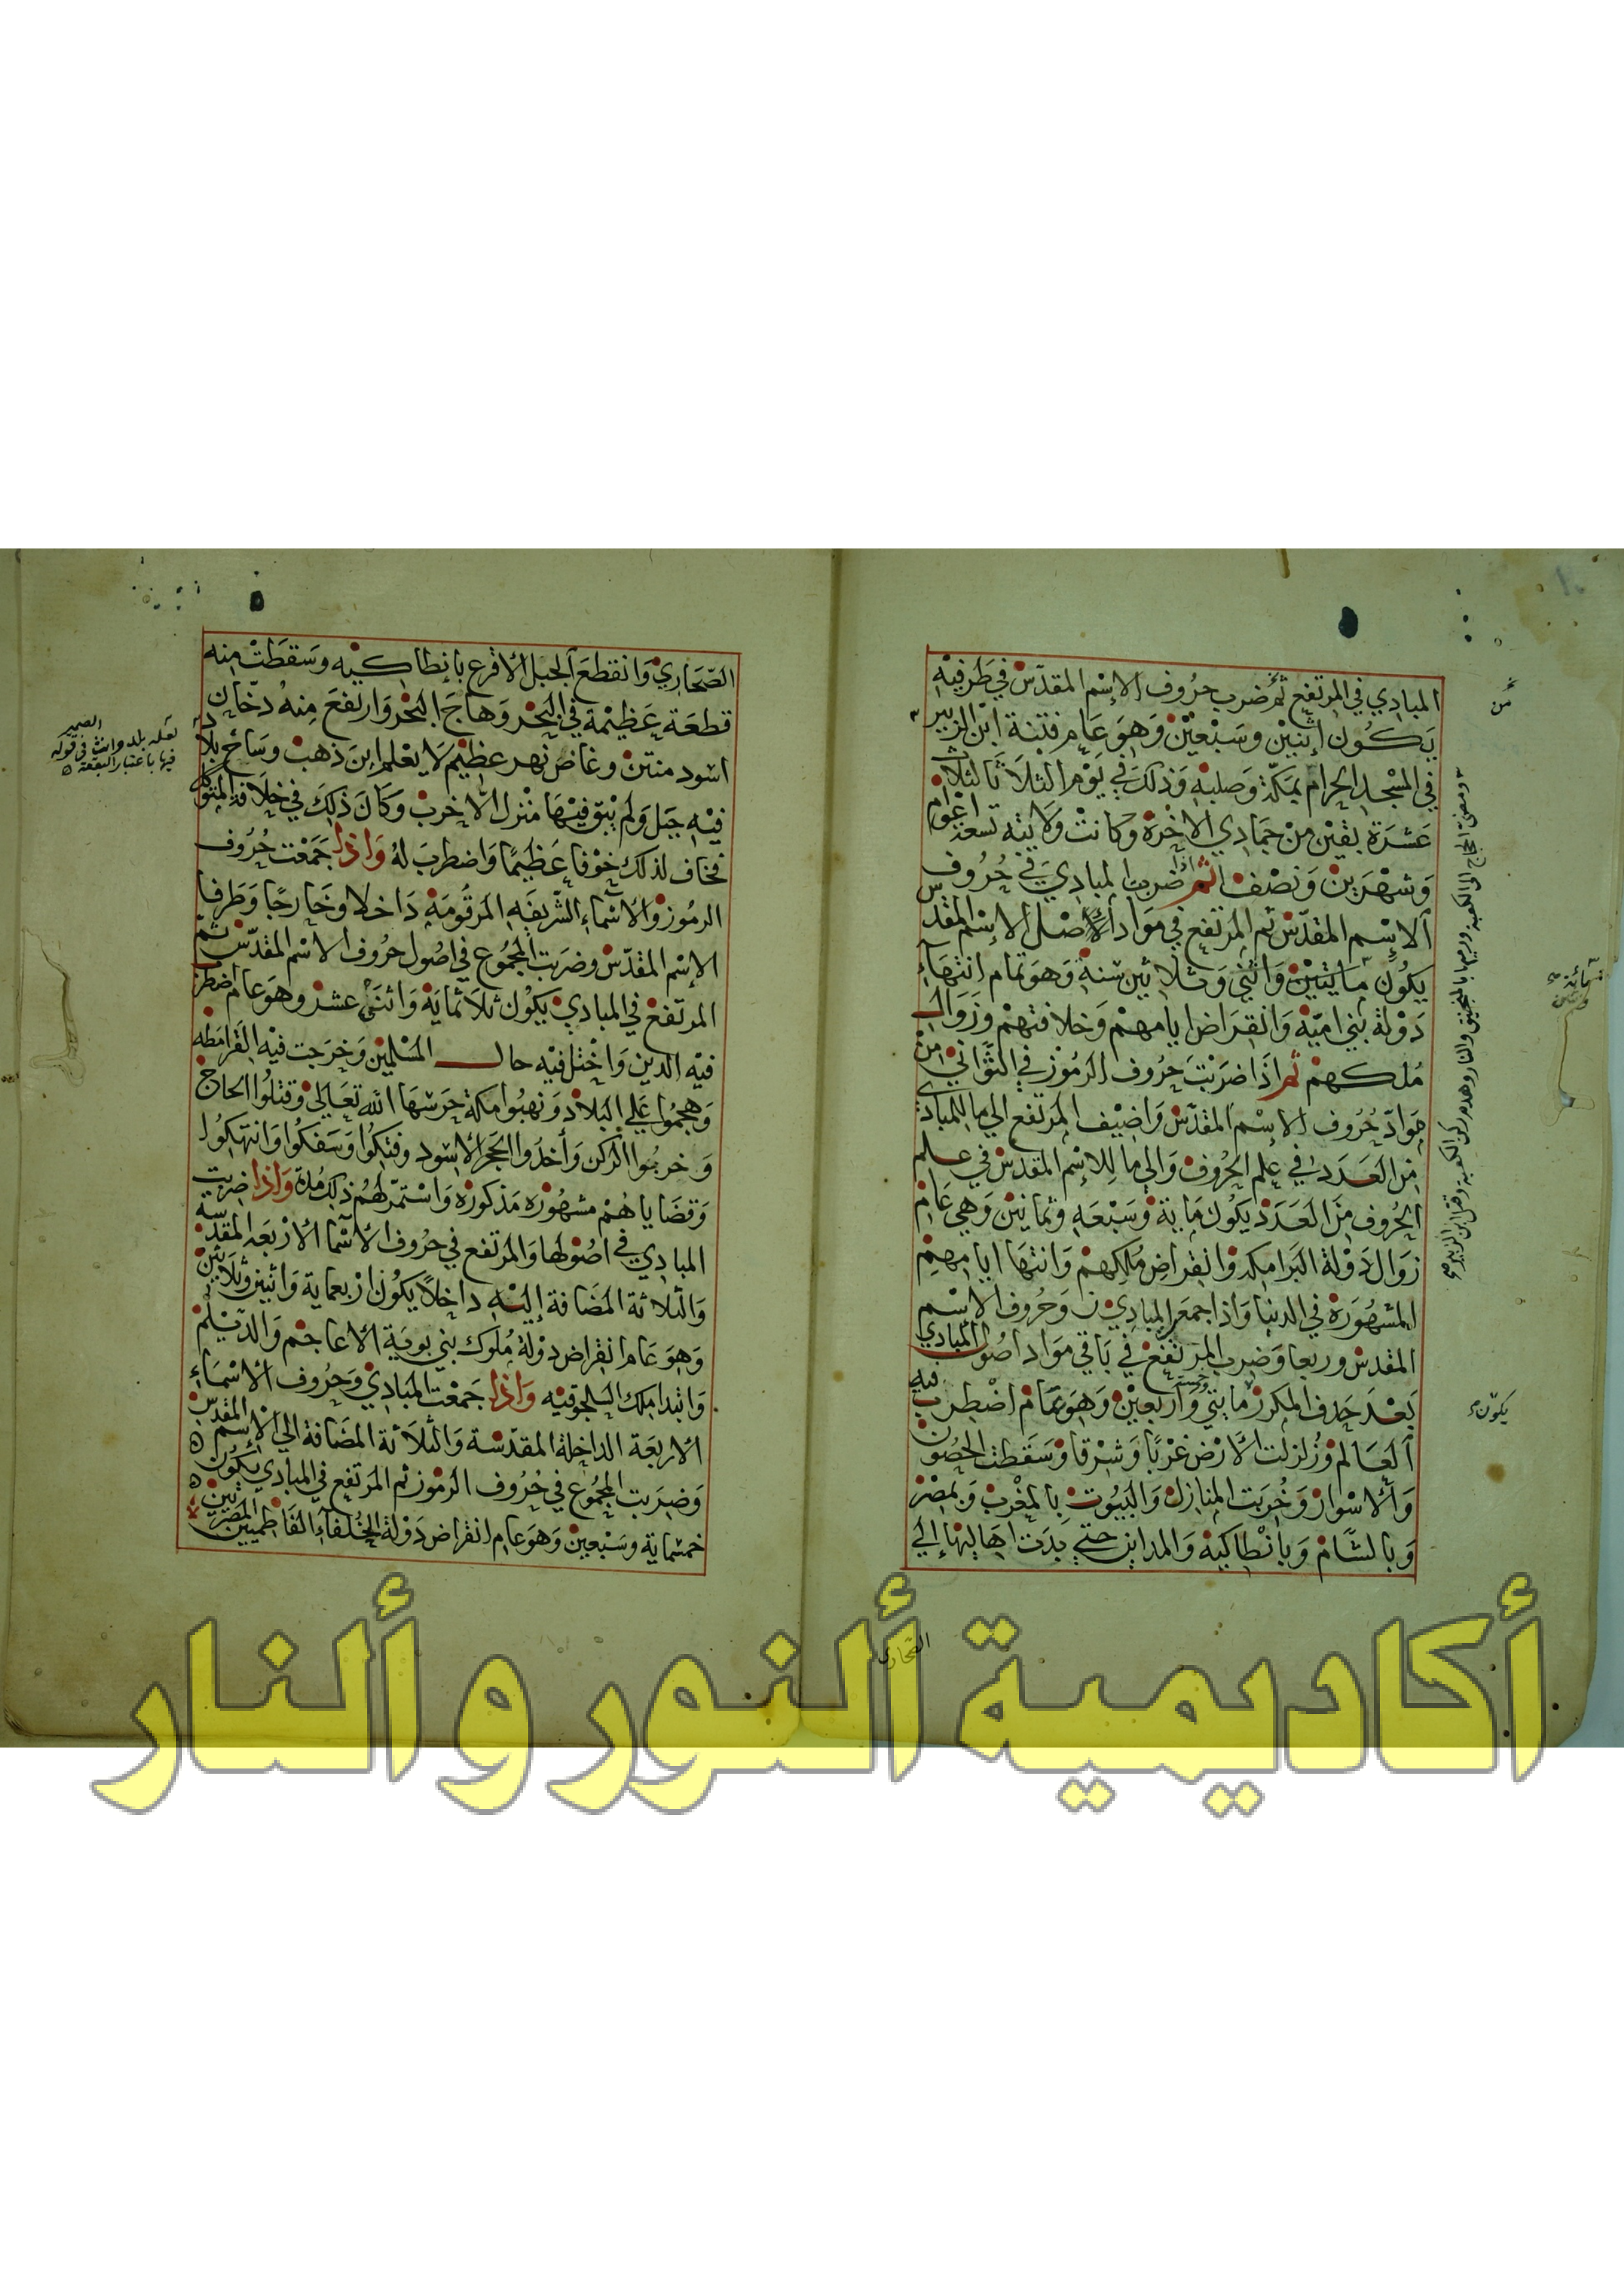 المبادي في المرتفع ثم ضرب حروف الاسم المقدس في طرفيه
يكون اثنين وسبعين وهو عام فتنة ابن الزبير
في المسجد الحرام بمكة وصلبه وذلك في يوم الثلاثا لثلاث
عشرة بقين من جمادي الاخرة وكانت ولايته تسعة اعوام
وشهرين ونصف ثم اذا ضربت المبادي في حروف
الاسم المقدس ثم المرتفع في مواد الاصل الاسم المقدس
يكون مايتين واثني وثلاثين سنة وهو تمام انتهاء
دولة بني امية وانقراض ايامهم وخلافتهم وزوال
ملكهم ثم اذا ضربت حروف الرموز في الثواني من
مواد حروف الاسم المقدس واضيف المرتفع الي ما للمبادي
من العدد في علم الحروف والي ما للاسم المقدس في علم
الحروف من العدد يكون ماية وسبعه وثمانين وهي عام
زوال دولة البرامكه وانقراض ملكهم وانتها ايامهم
المشهورة في الدنيا واذا جمعت المبادي وحروف الاسم
المقدس وربعا وضرب المرتفع في باقي مواد اصول المبادي
بعد حذف المكرر مايتي وخمسة واربعين وهو تمام اضطرب فيه
العالم وزلزلت الارض غربا وشرقا وسقطت الحصون
والاسوار وخربت المنازل والبيوت بالمغرب وبمصر
وبالشام وبانطاكية والمداين حتي بدت اهاليها إلي
الصحاري
من
ورمي بالمنجنيق والنار وهدم ركن الكعبة وقتل ابن الزبير
يكون
الصحاري وانقطع الجبل الاقرع بانطاكيه وسقطت منه
قطعة عظيمة في البحر وهاج البحر وارتفع منه دخان
اسود منتن وغاض نهر عظيم لا يعلم اين ذهب وساخ بلاد
فيه جبل ولم يبق فيها منزل الا خرب وكان ذلك في خلافة المتوكل
فخاف لذلك خوفا عظيما واضطرب له واذا جمعت حروف
الرموز والاسماء الشريفه المرقومة داخلا وخارجا وطرفا
الاسم المقدس وضربت المجموع في اصول حروف الاسم المقدس ثم
المرتفع في المبادي يكون ثلاثماية واثني عشر وهو عام اضطر
فيه الدين واختل فيه حال المسلمين وخرجت فيه القرامطه
وهجموا علي البلاد ونهبوا مكة حرسها الله تعالي وقتلوا الحاج
وخربوا الركن وأخذوا الحجر الاسود وفتكوا وسفكوا وانتهكوا
وقضاياهم مشهوره مذكوره واستمر لهم ذلك مدة واذا ضربت
المبادي في اصولها والمرتفع في حروف الاسما الاربعه المقدسة
والثلاثة المضافة إليه داخلا يكون اربعماية واثنين وثلاثين
وهو عام انقراض دولة ملوك بني بوية الاعاجم والديلم
وابتدا ملك السلجوقيه واذا جمعت المبادي وحروف الاسماء
الاربعة الداخلة المقدسة والثلاثة المضافة الي الاسم المقدس
وضربت المجموع في حروف الرموز ثم المرتفع في المبادي يكون
خمسماية وسبعين وهو عام انقراض دولة الخلفاء الفاطميين المصريين
لعله بلد وانث الضمير في قوله
فيها باعتبار البقعة
أكاديمية ألنور و ألنار